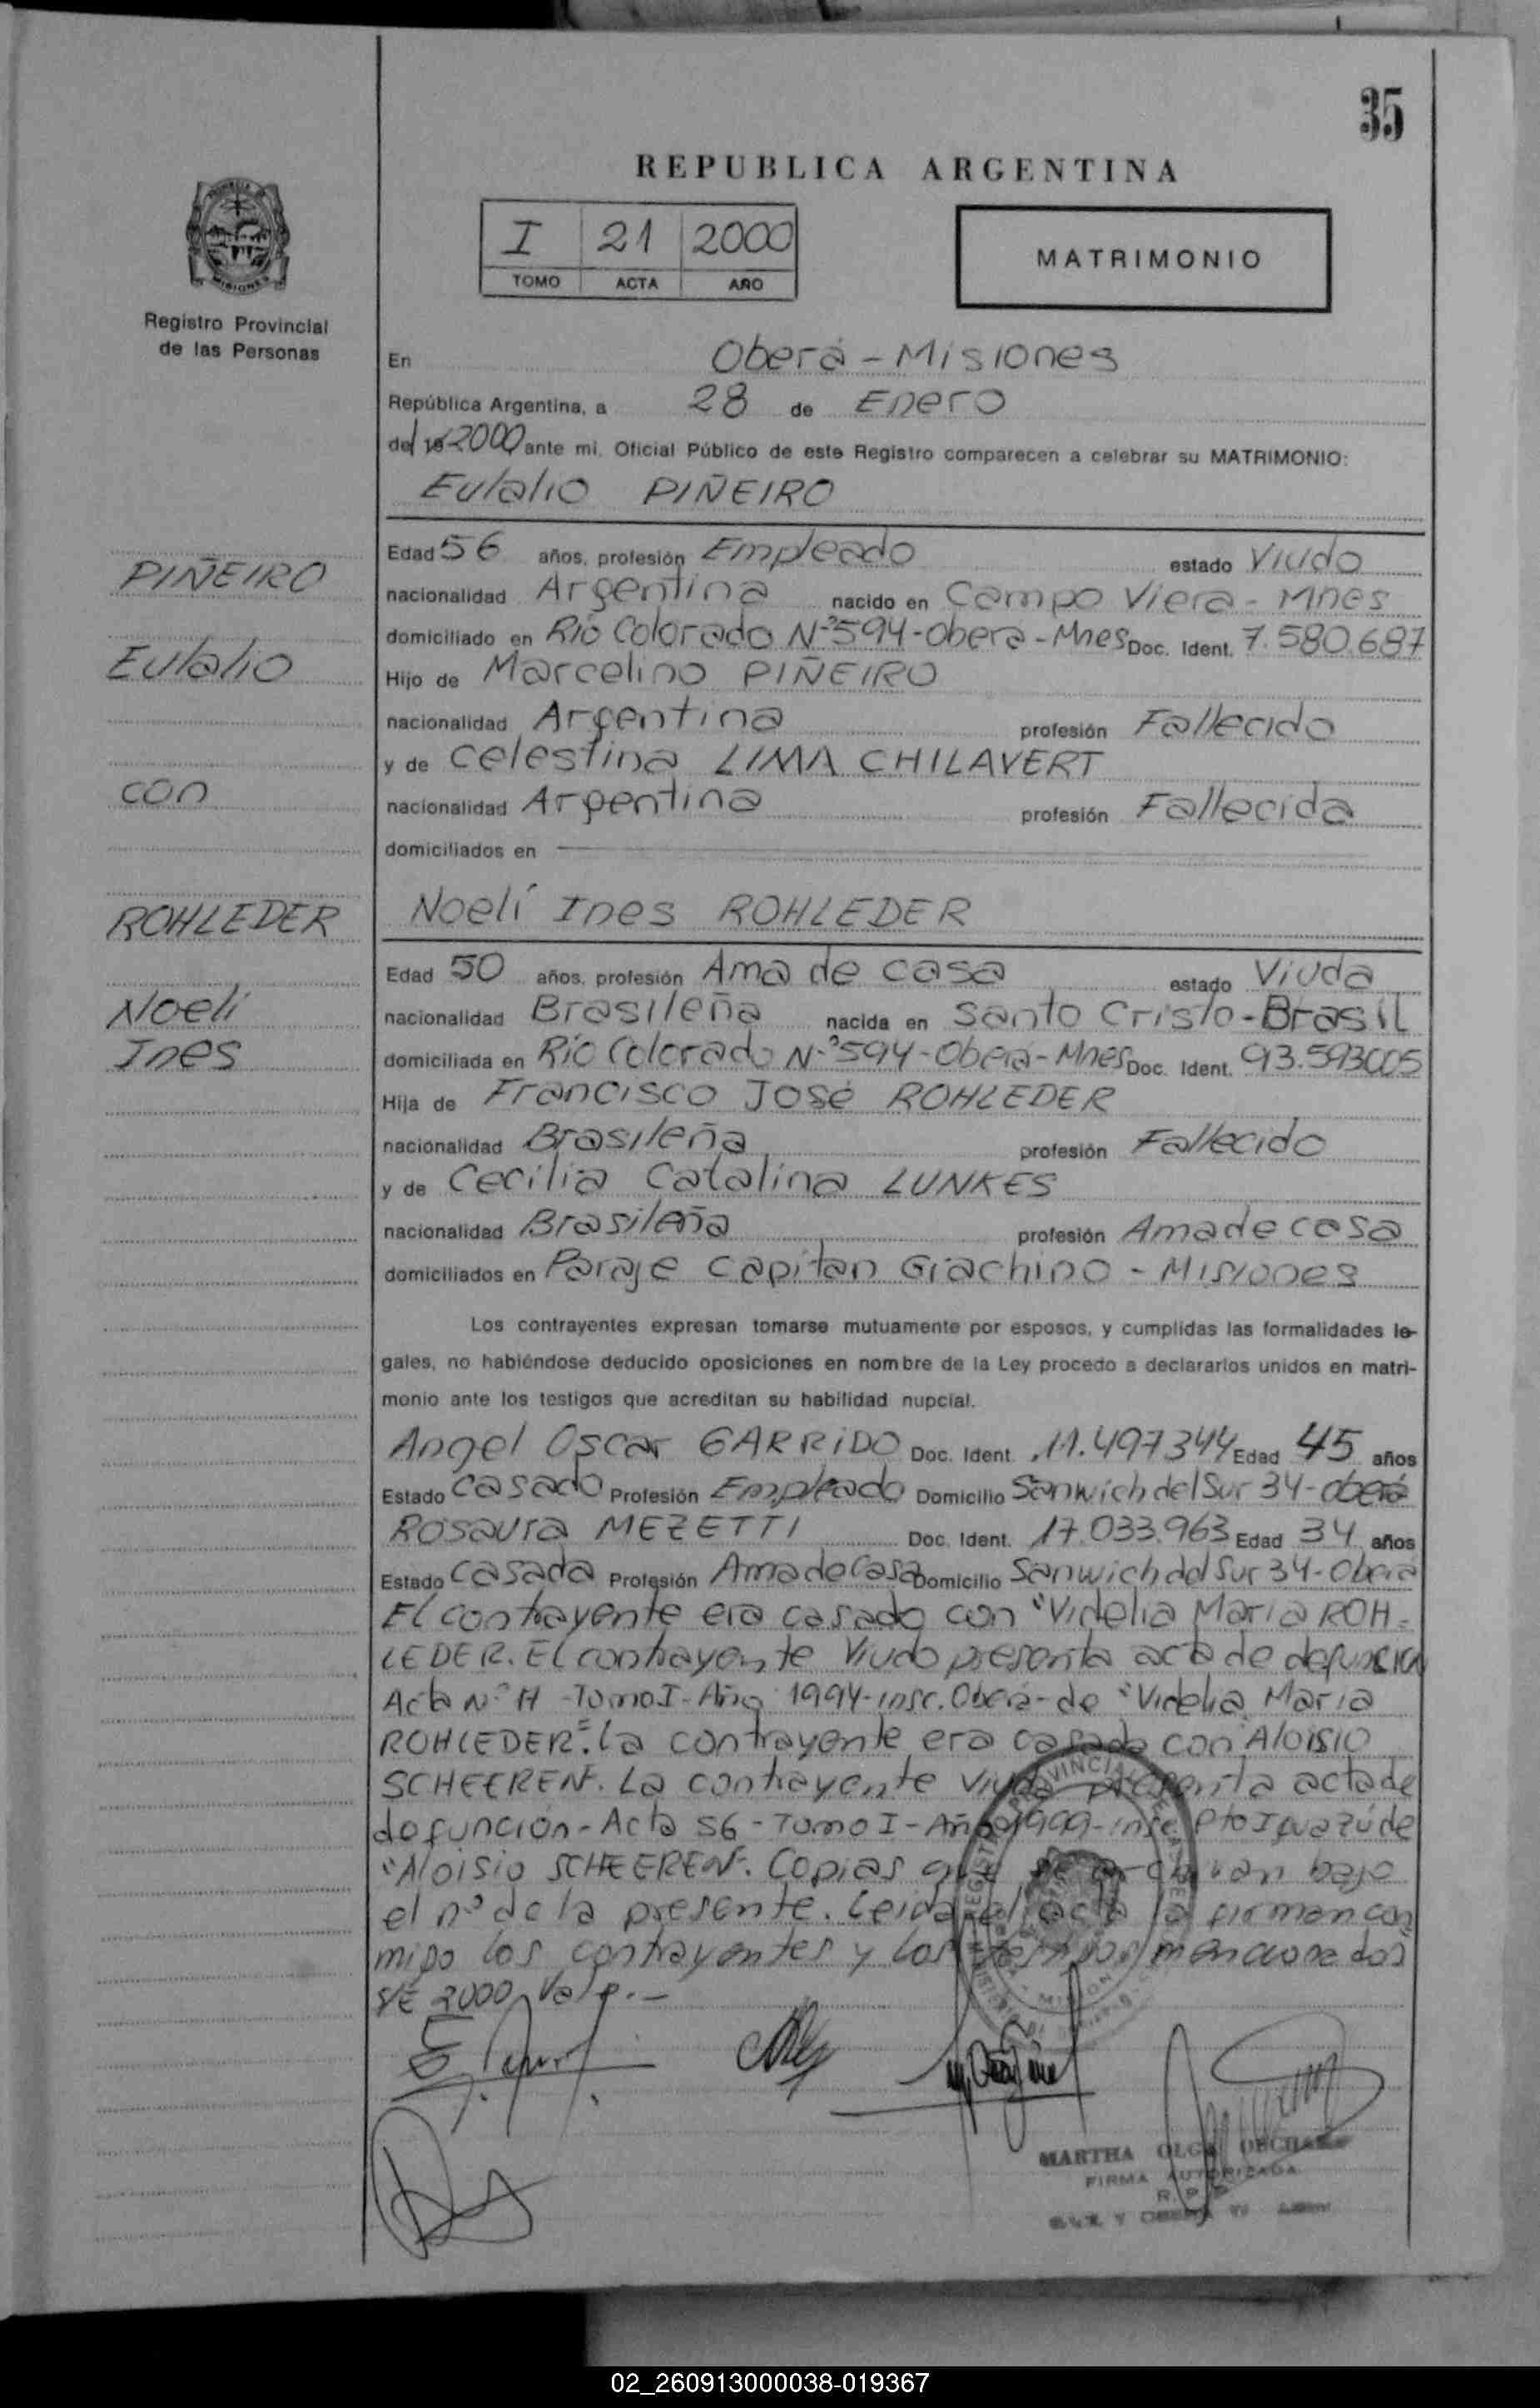 35
REPUBLICA ARGENTINA
I 21 2000
TOMO ACTA AÑO
MATRIMONIO
Registro Provincial
de las Personas
En Oberá - Misiones
República Argentina, a 28 de Enero
del 2000 ante mi, Oficial Público de este Registro comparecen a celebrar su MATRIMONIO:
Eulalio PIÑEIRO
PIÑEIRO
Eulalio
con
ROHLEDER
Noeli
Ines
Edad 56 años, profesión Empleado estado Viudo
nacionalidad Argentina nacido en Campo Viera - Mnes
domiciliado en Río Colorado Nº 594 - Obera - Mnes Doc. Ident. 7.580.687
Hijo de Marcelino PIÑEIRO
nacionalidad Argentina profesión Fallecido
y de Celestina LIMA CHILAVERT
nacionalidad Argentina profesión Fallecida
domiciliados en
Noelí Ines ROHLEDER
Edad 50 años, profesión Ama de casa estado Viuda
nacionalidad Brasileña nacida en Santo Cristo - Brasil
domiciliada en Río Colorado Nº 594 - Oberá - Mnes Doc. Ident. 93.593005
Hija de Francisco José ROHLEDER
nacionalidad Brasileña profesión Fallecido
y de Cecilia Catalina LUNKES
nacionalidad Brasileña profesión Ama de casa
domiciliados en Paraje Capitan Giachino - Misiones
Los contrayentes expresan tomarse mutuamente por esposos, y cumplidas las formalidades le-
gales, no habiéndose deducido oposiciones en nombre de la Ley procedo a declararlos unidos en matri-
monio ante los testigos que acreditan su habilidad nupcial.
Angel Oscar GARRIDO Doc. Ident. 11.497344 Edad 45 años
Estado Casado Profesión Empleado Domicilio Sanwich del Sur 34 - Oberá
Rosaura MEZETTI Doc. Ident. 17.033.963 Edad 34 años
Estado Casada Profesión Ama de Casa Domicilio Sanwich del Sur 34 - Oberá
El contrayente era casado con "Videlia Maria ROH=
LEDER. El contrayente Viudo presenta acta de defuncion
Acta Nº - Tomo I - Año 1994 - insc. Oberá - de "Videlia Maria
ROHLEDER". La contrayente era casada con Aloisio
SCHEEREN". La contrayente Viuda presenta acta de
defunción - Acta 56 - Tomo I - Año 1999 - insc. Pto Iguazú de
"Aloisio SCHEEREN". Copias que se archivan bajo
el nº de la presente. Leida el acta la firman con
migo los contrayentes y los testigos mencionados
S/E 2000 Vale.-
MARTHA OLGA
FIRMA AUTORIZADA
02_260913000038-019367